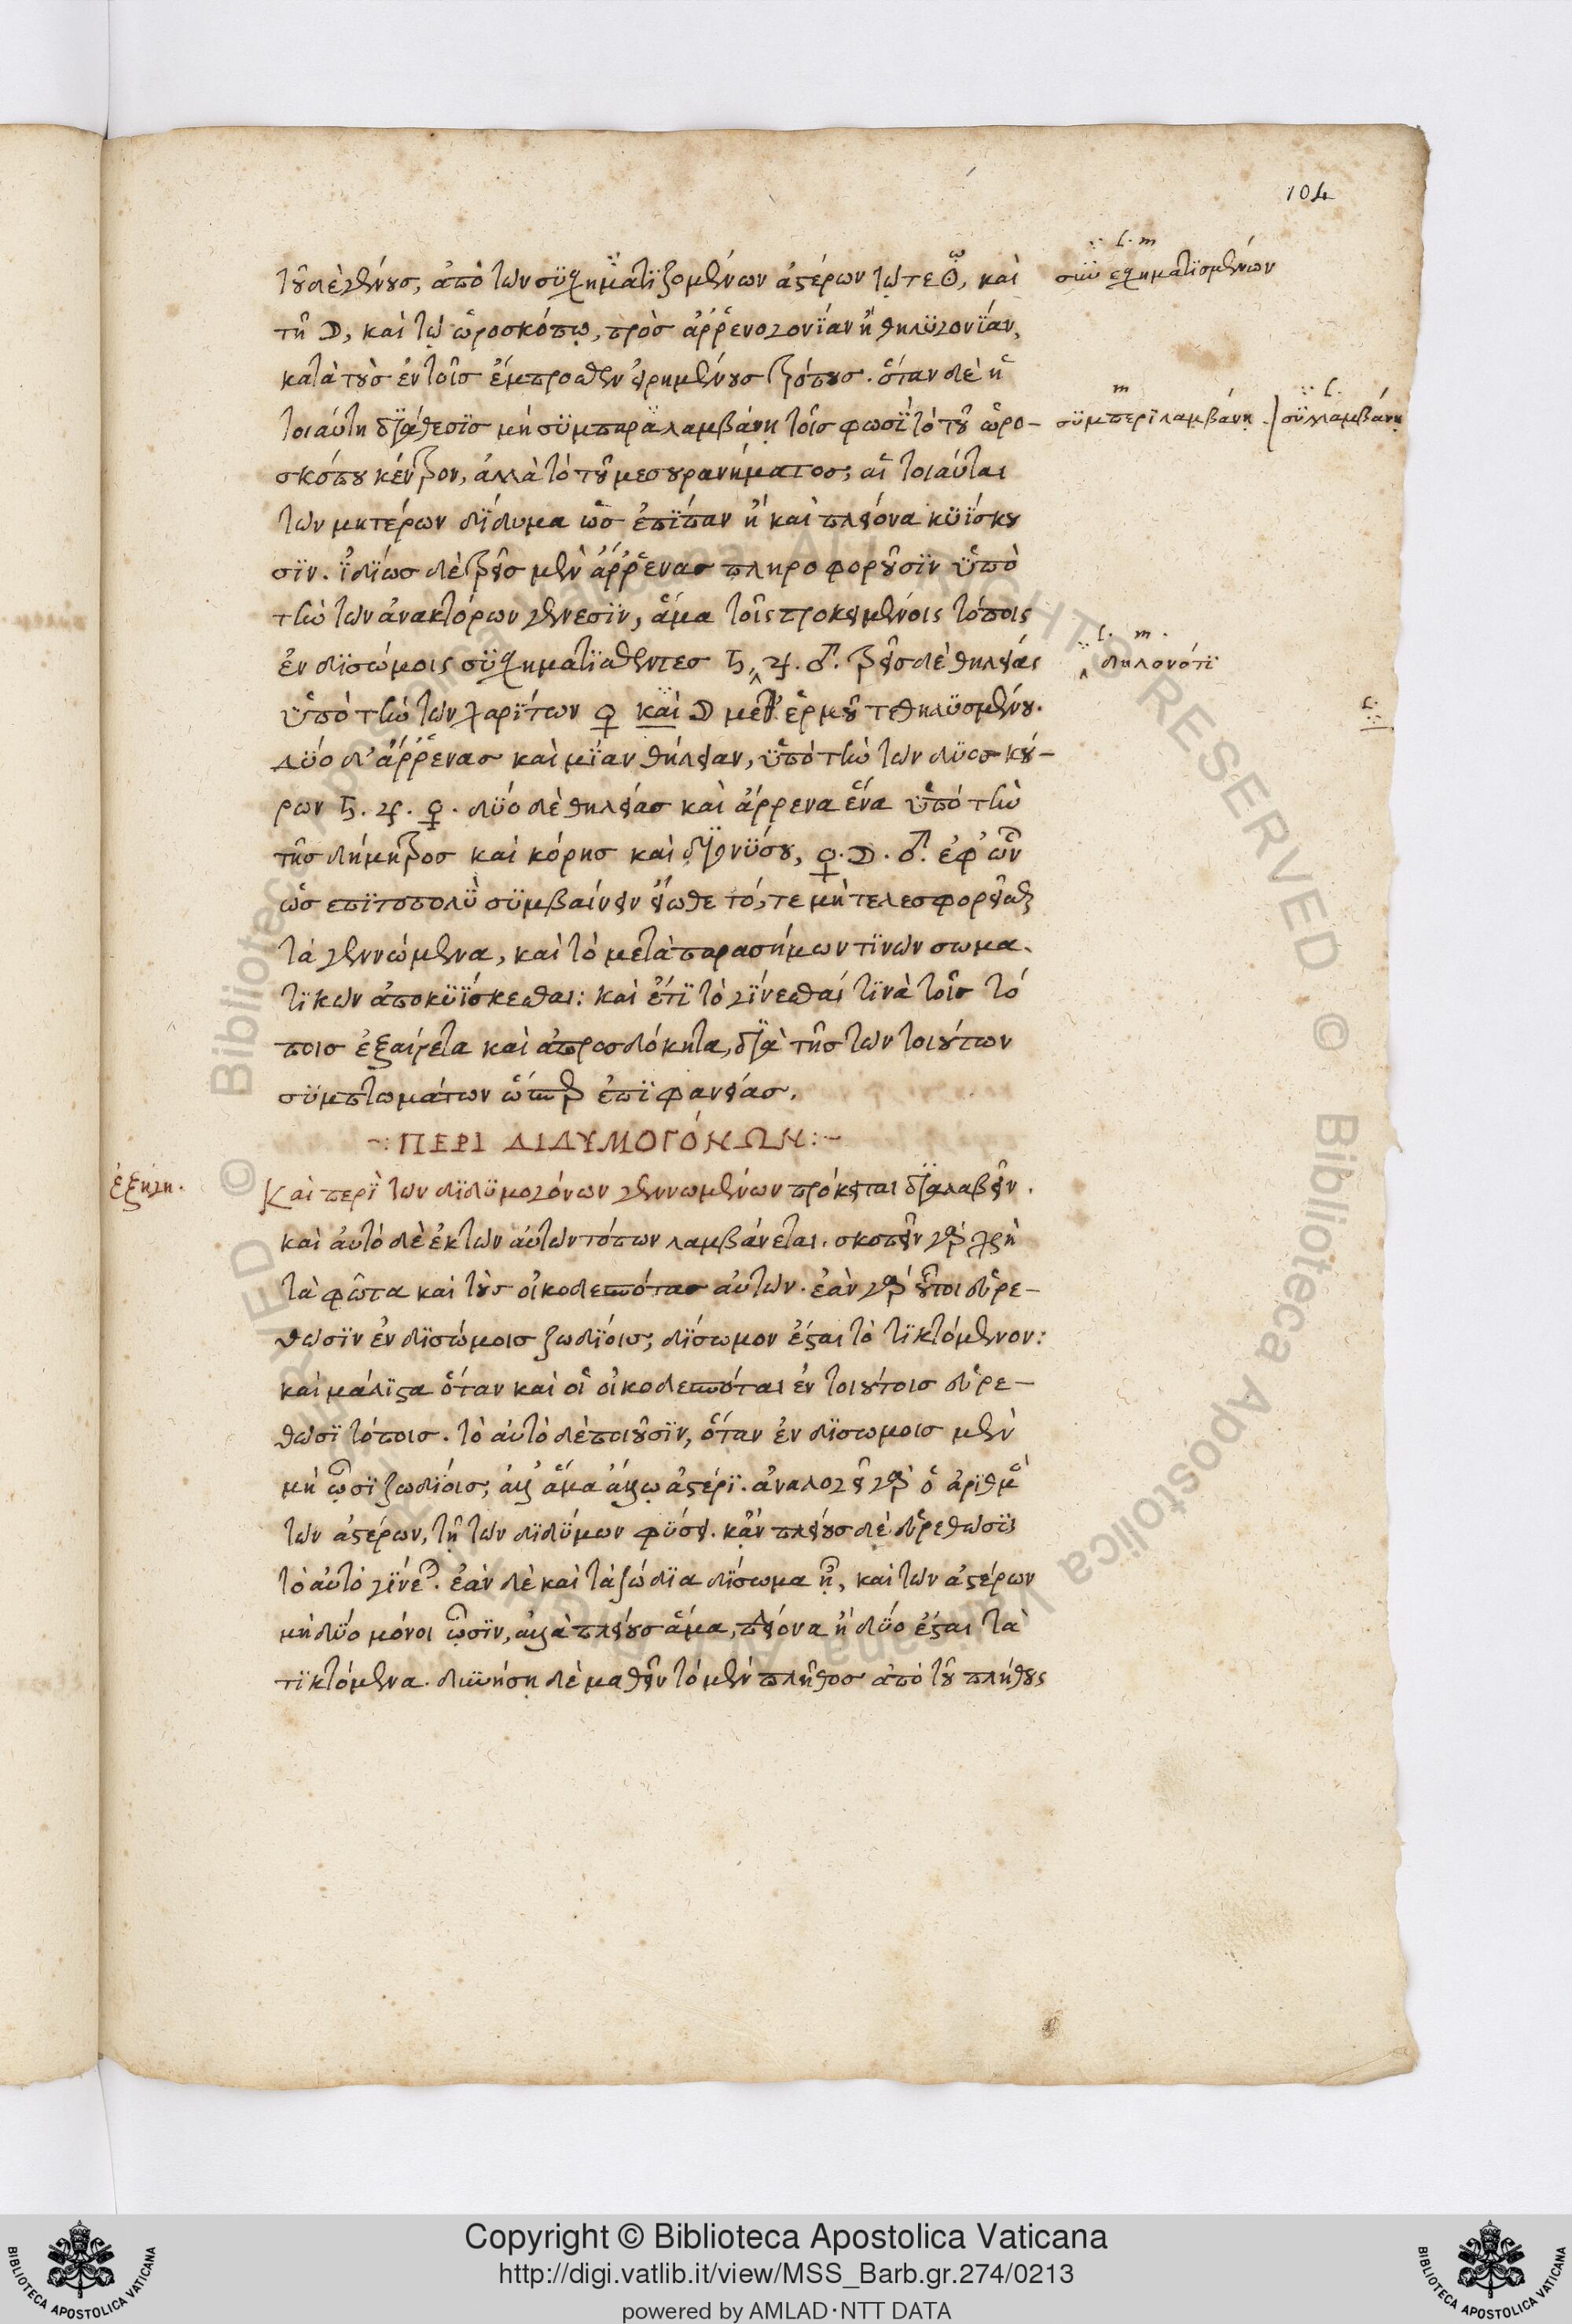 104
τοῦ δὲ γένους, ἀπὸ τῶν συσχηματιζομένων ἀστέρων τῷ τε ☉, καὶ
συνεσχηματισμένων
τῇ ☽, καὶ τῷ ὡροσκόπῳ, πρὸς ἀῤῥενογονίαν ἢ θηλυγονίαν,
κατὰ τοὺς ἐν τοῖς ἔμπροσθεν εἰρημένους τρόπους. ὅταν δὲ ἡ
τοιαύτη διάθεσις μὴ συμπαραλαμβάνῃ τοῖς φωσὶ τὸ τοῦ ὡρο-
συμπεριλαμβάνῃ. συλλαμβάνῃ
σκόπου κέντρον, ἀλλὰ τὸ τοῦ μεσουρανήματος, αἱ τοιαῦται
τῶν μητέρων δίδυμα ὡς ἐπίπαν ἢ καὶ πλείονα κυΐσκου
σιν. ἰδίως δὲ τρεῖς μὲν ἄῤῥενας πληροφοροῦσιν ὑπὸ
τὴν τῶν ἀνακτόρων γένεσιν, ἅμα τοῖς προκειμένοις τόποις
ἐν δισώμοις συσχηματισθέντες ♄, ♃. ♂. τρεῖς δὲ θηλείας
l. m. δηλονότι
ὑπὸ τὴν τῶν χαρίτων ♀ καὶ ☽ μεθ' ἑρμοῦ τεθηλυσμένου.
δύο δ' ἄῤῥενας καὶ μίαν θήλειαν, ὑπὸ τὴν τῶν διοσκού-
ρων ♄. ♃. ♀. δύο δὲ θηλείας καὶ ἄρρενα ἕνα ὑπὸ τὴν
τῆς δήμητρος καὶ κόρης καὶ διονύσου, ♀. ☽. ♂. ἐφ' ὧν
ὡς επιτοπολὺ συμβαίνειν εἴωθε τό, τε μὴ τελεσφορεῖσθαι
τὰ γεννώμενα, καὶ τὸ μετὰ παρασήμων τινῶν σωμα.
τικῶν ἀποκυΐσκεσθαι: καὶ ἔτι τὸ γίνεσθαί τινὰ τοῖς τό
ποις ἐξαίρετα καὶ ἀπροσδόκητα, διὰ τῆς τῶν τοιούτων
συμπτωμάτων ὥσπερ ἐπιφανείας.
-: ΠΕΡΙ ΔΙΔΥΜΟΓΌΝΩΝ :-
ἐξήγη.
Καὶ περὶ τῶν διδυμογόνων γεννωμένων πρόκειται διαλαβεῖν.
καὶ ἀυτὸ δὲ ἐκ τῶν αὐτῶν τόπων λαμβάνεται. σκοπεῖν γὰρ χρὴ
τὰ φῶτα καὶ τοὺς οἰκοδεσπότας αὐτῶν. ἐὰν γὰρ οὗτοι εὑρε-
θῶσιν ἐν δισώμοις ζωδίοις, δίσωμον ἔσται τὸ τικτόμενον:
καὶ μάλιστα ὅταν καὶ οἱ οἰκοδεσπόται ἐν τοιούτοις εὑρε-
θῶσι τόποις. τὸ αὐτὸ δὲ ποιοῦσιν, ὅταν ἐν δισώμοις μὲν
μὴ ὦσι ζωδίοις, ἀλλ' ἅμα ἄλλῳ ἀστέρι. ἀναλογεῖ γὰρ ὁ ἀριθμὸς
τῶν ἀστέρων, τῇ τῶν διδύμων φύσει. κἂν πλείους δὲ εὑρεθῶσι
τὸ αὐτὸ γίνεται. ἐὰν δὲ καὶ τὰ ζώδια δίσωμα ᾖ, καὶ τῶν ἀστέρων
μὴ δύο μόνοι ὦσιν, ἀλλὰ πλείους ἅμα, πλείονα ἢ δύο ἔσται τὰ
τικτόμενα. δυνήσῃ δὲ μαθεῖν τὸ μὲν πλῆθος ἀπὸ τοῦ πλήθους
Copyright © Biblioteca Apostolica Vaticana
http://digi.vatlib.it/view/MSS_Barb.gr.274/0213
powered by AMLAD·NTT DATA